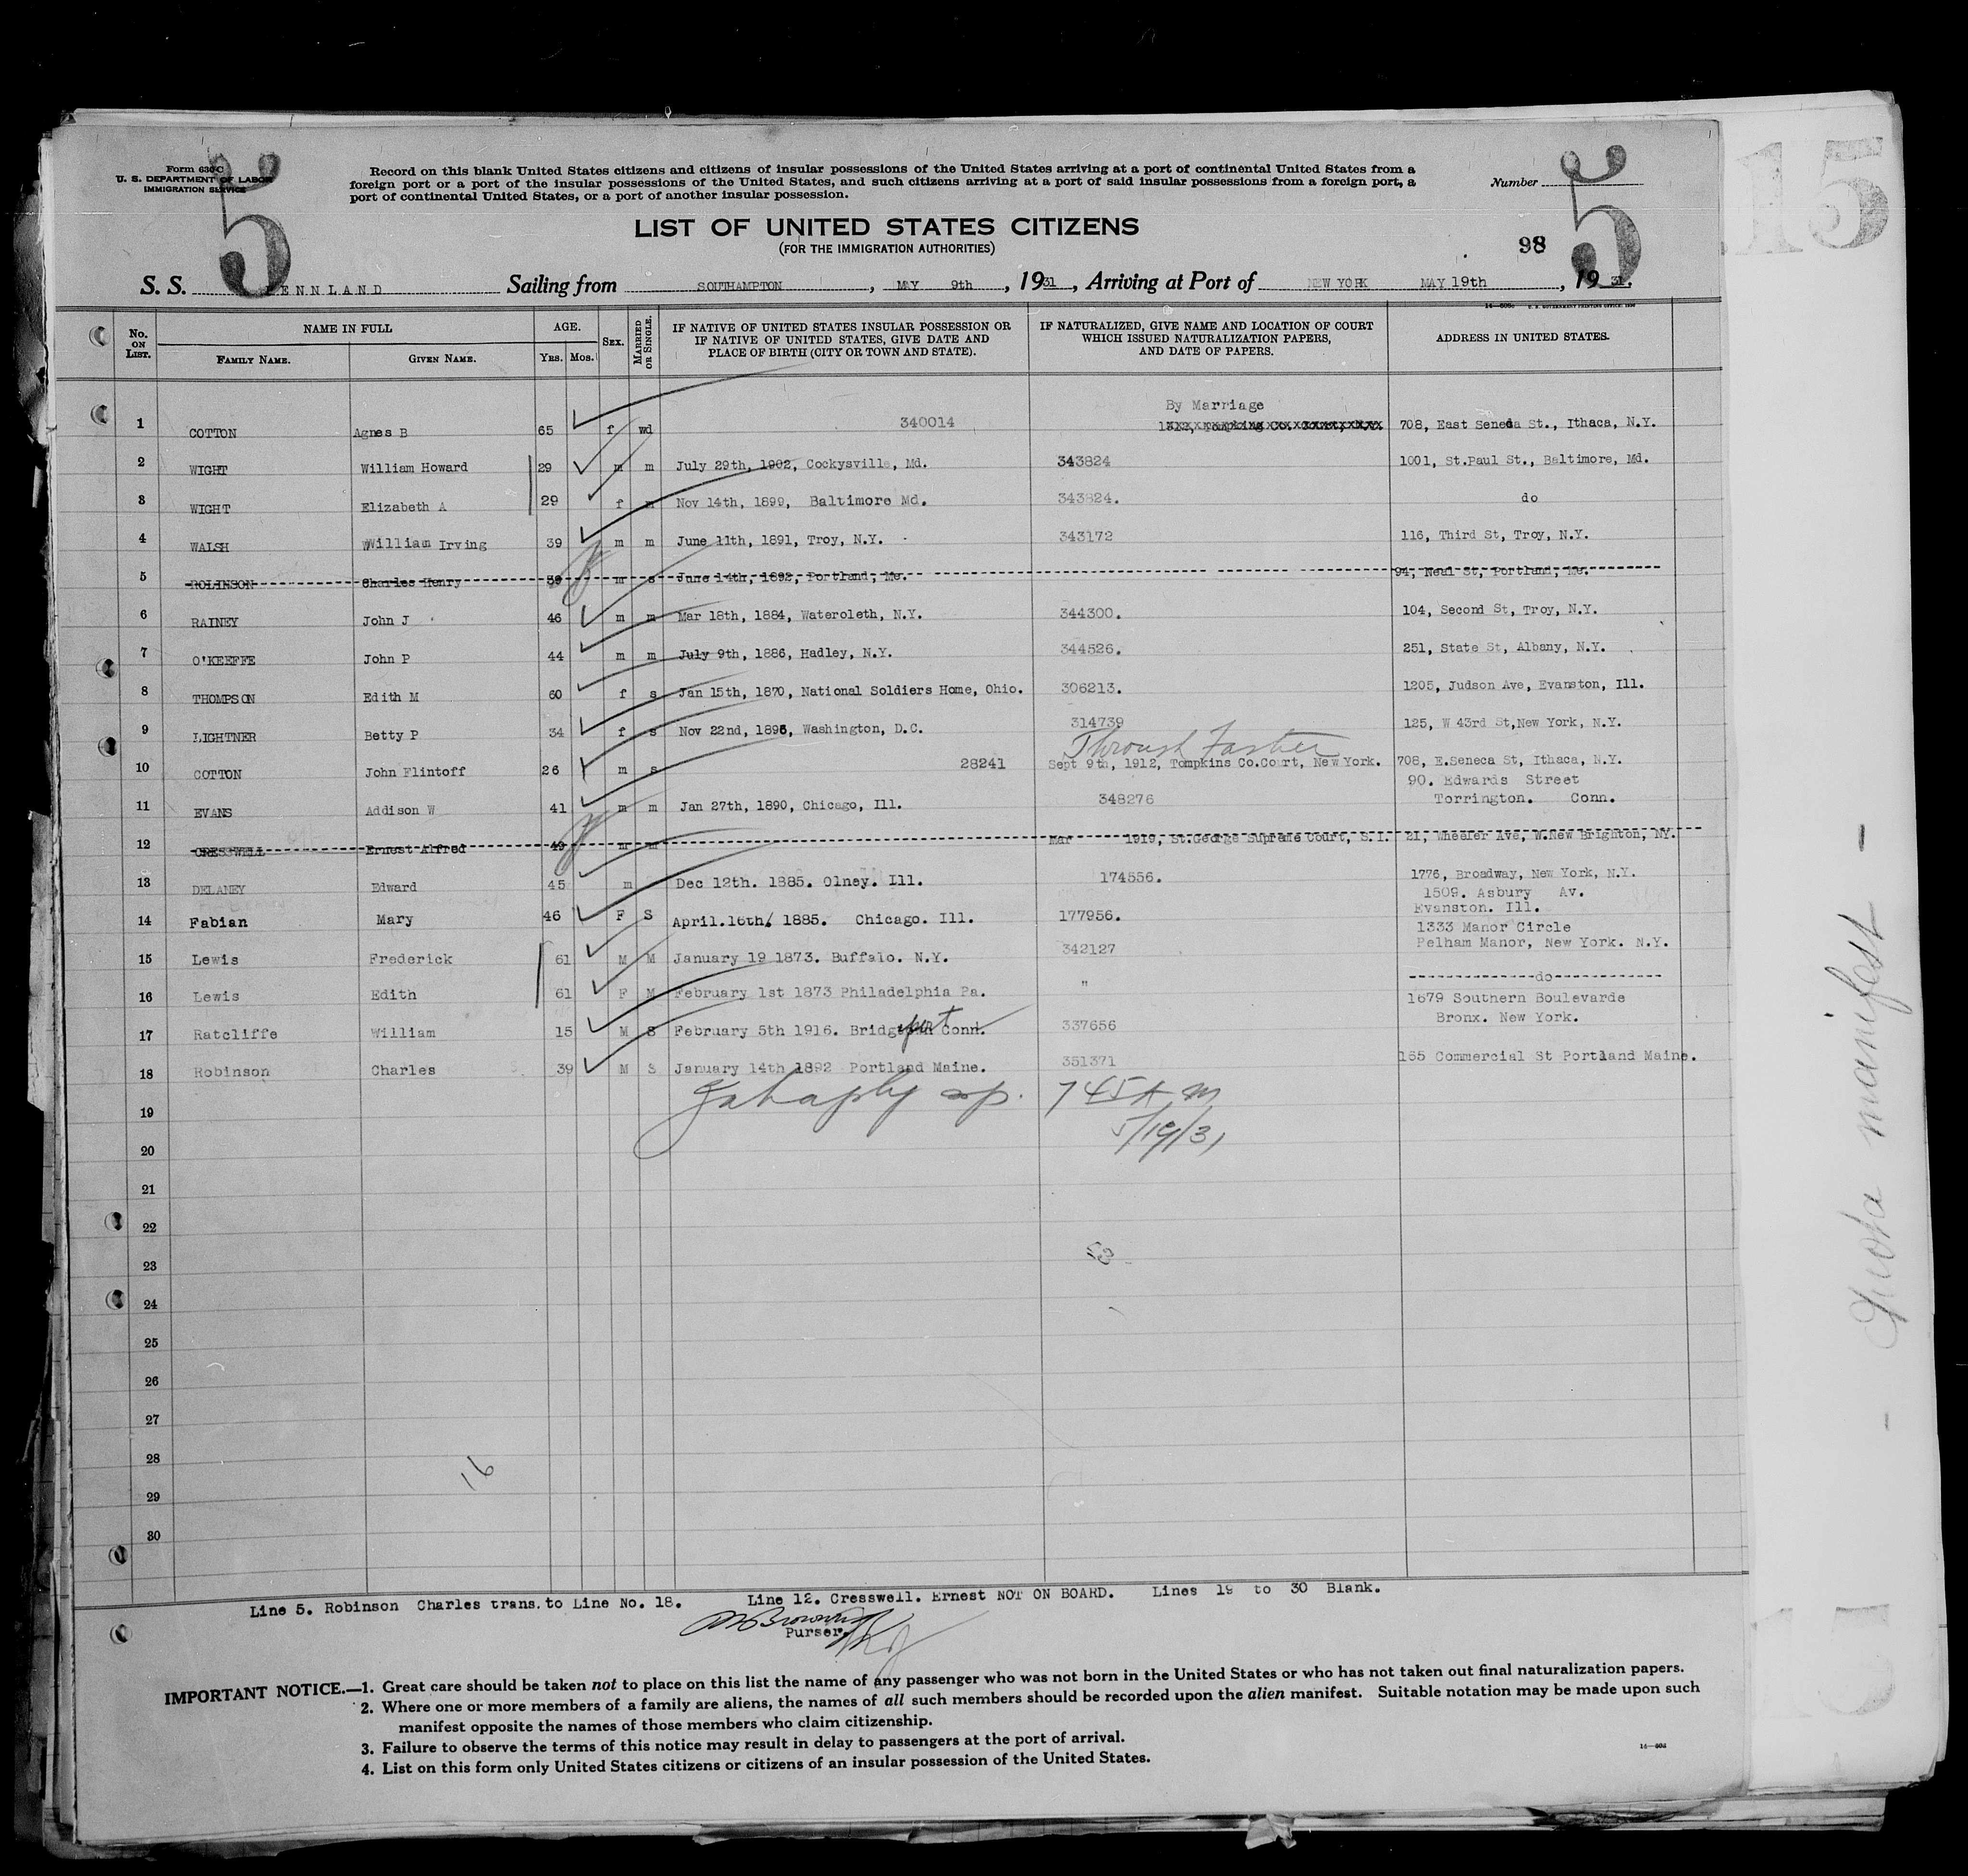 Form 630-C
U. S. DEPARTMENT OF LABOR
IMMIGRATION SERVICE
5
Record on this blank United States citizens and citizens of insular possessions of the United States arriving at a port of continental United States from a
foreign port or a port of the insular possessions of the United States, and such citizens arriving at a port of said insular possessions from a foreign port, a
port of continental United States, or a port of another insular possession.
Number
5
15
LIST OF UNITED STATES CITIZENS
(FOR THE IMMIGRATION AUTHORITIES)
98
S. S. PENNLAND Sailing from SOUTHAMPTON, MAY 9th, 1931, Arriving at Port of NEW YORK MAY 19th, 1931.
No. ON LIST. NAME IN FULL FAMILY NAME. GIVEN NAME. AGE. YRS. MOS. SEX. MARRIED OR SINGLE. IF NATIVE OF UNITED STATES INSULAR POSSESSION OR IF NATIVE OF UNITED STATES, GIVE DATE AND PLACE OF BIRTH (CITY OR TOWN AND STATE). IF NATURALIZED, GIVE NAME AND LOCATION OF COURT WHICH ISSUED NATURALIZATION PAPERS, AND DATE OF PAPERS. ADDRESS IN UNITED STATES.
By Marriage
1 COTTON Agnes B 65 f wd 340014 708, East Seneca St., Ithaca, N.Y.
2 WIGHT William Howard 29 m m July 29th, 1902, Cockysville, Md. 343824 1001, St.Paul St., Baltimore, Md.
3 WIGHT Elizabeth A 29 f m Nov 14th, 1899, Baltimore Md. 343824. do
4 WALSH William Irving 39 m m June 11th, 1891, Troy, N.Y. 343172 116, Third St, Troy, N.Y.
5 ROLINSON Charles Henry 39 m s June 14th, 1892, Portland, Me. 94, Neal St, Portland, Me.
6 RAINEY John J 46 m m Mar 18th, 1884, Wateroleth, N.Y. 344300. 104, Second St, Troy, N.Y.
7 O'KEEFFE John P 44 m m July 9th, 1886, Hadley, N.Y. 344526. 251, State St, Albany, N.Y.
8 THOMPSON Edith M 60 f s Jan 15th, 1870, National Soldiers Home, Ohio. 306213. 1205, Judson Ave, Evanston, Ill.
9 LIGHTNER Betty P 34 f s Nov 22nd, 1896, Washington, D.C. 314739 125, W 43rd St,New York, N.Y.
Through Father
10 COTTON John Flintoff 26 m s 28241 Sept 9th, 1912, Tompkins Co.Court, New York. 708, E.Seneca St, Ithaca, N.Y.
90. Edwards Street
11 EVANS Addison W 41 m m Jan 27th, 1890, Chicago, Ill. 348276 Torrington. Conn.
12 CRESSWELL Ernest Alfred 49 m m Mar 1919, St.George Supreme Court, S.I. 21, Wheeler Ave, W.New Brighton, NY.
13 DELANEY Edward 45 m Dec 12th. 1885. Olney. Ill. 174556. 1776, Broadway, New York, N.Y.
1509. Asbury Av.
14 Fabian Mary 46 F S April.16th. 1885. Chicago. Ill. 177956. Evanston. Ill.
1333 Manor Circle
15 Lewis Frederick 61 M M January 19 1873. Buffalo. N.Y. 342127 Pelham Manor, New York. N.Y.
16 Lewis Edith 61 F M February 1st 1873 Philadelphia Pa. " do
1679 Southern Boulevarde
17 Ratcliffe William 15 M S February 5th 1916. Bridgeport Conn. 337656 Bronx. New York.
18 Robinson Charles 39 M S January 14th 1892 Portland Maine. 351371 165 Commercial St Portland Maine.
19 745 A m
20 5/19/31
21
22
23
24
25
26
27
28
16
29
30
Line 5. Robinson Charles trans. to Line No. 18. Line 12. Cresswell. Ernest NOT ON BOARD. Lines 19 to 30 Blank.
Purser.
IMPORTANT NOTICE.—1. Great care should be taken not to place on this list the name of any passenger who was not born in the United States or who has not taken out final naturalization papers.
2. Where one or more members of a family are aliens, the names of all such members should be recorded upon the alien manifest. Suitable notation may be made upon such
manifest opposite the names of those members who claim citizenship.
3. Failure to observe the terms of this notice may result in delay to passengers at the port of arrival.
4. List on this form only United States citizens or citizens of an insular possession of the United States.
manifest